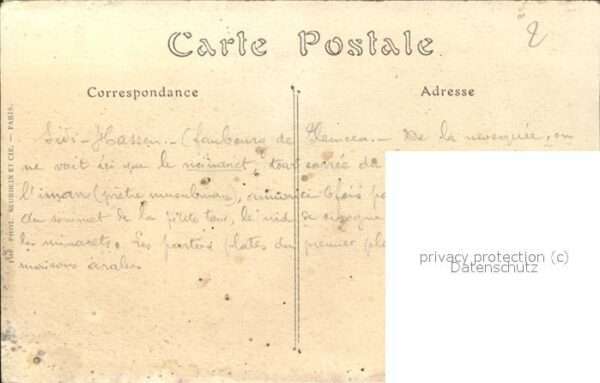 Carte Postale
2
Correspondance
Adresse
Sidi-Hassen. - (faubourg de Tlemcen. - De la mosquée, on
ne voit ici que le minaret, tour carrée du
l'iman (prêtre musulman), annonce 6 fois pa
du sommet de la p'tite tour, le nid de cigogne
les minarets. Les parties plates du premier pla
maisons arabes
IMP. PHOT. NEURDEIN ET CIE. — PARIS.
privacy protection (c)
Datenschutz